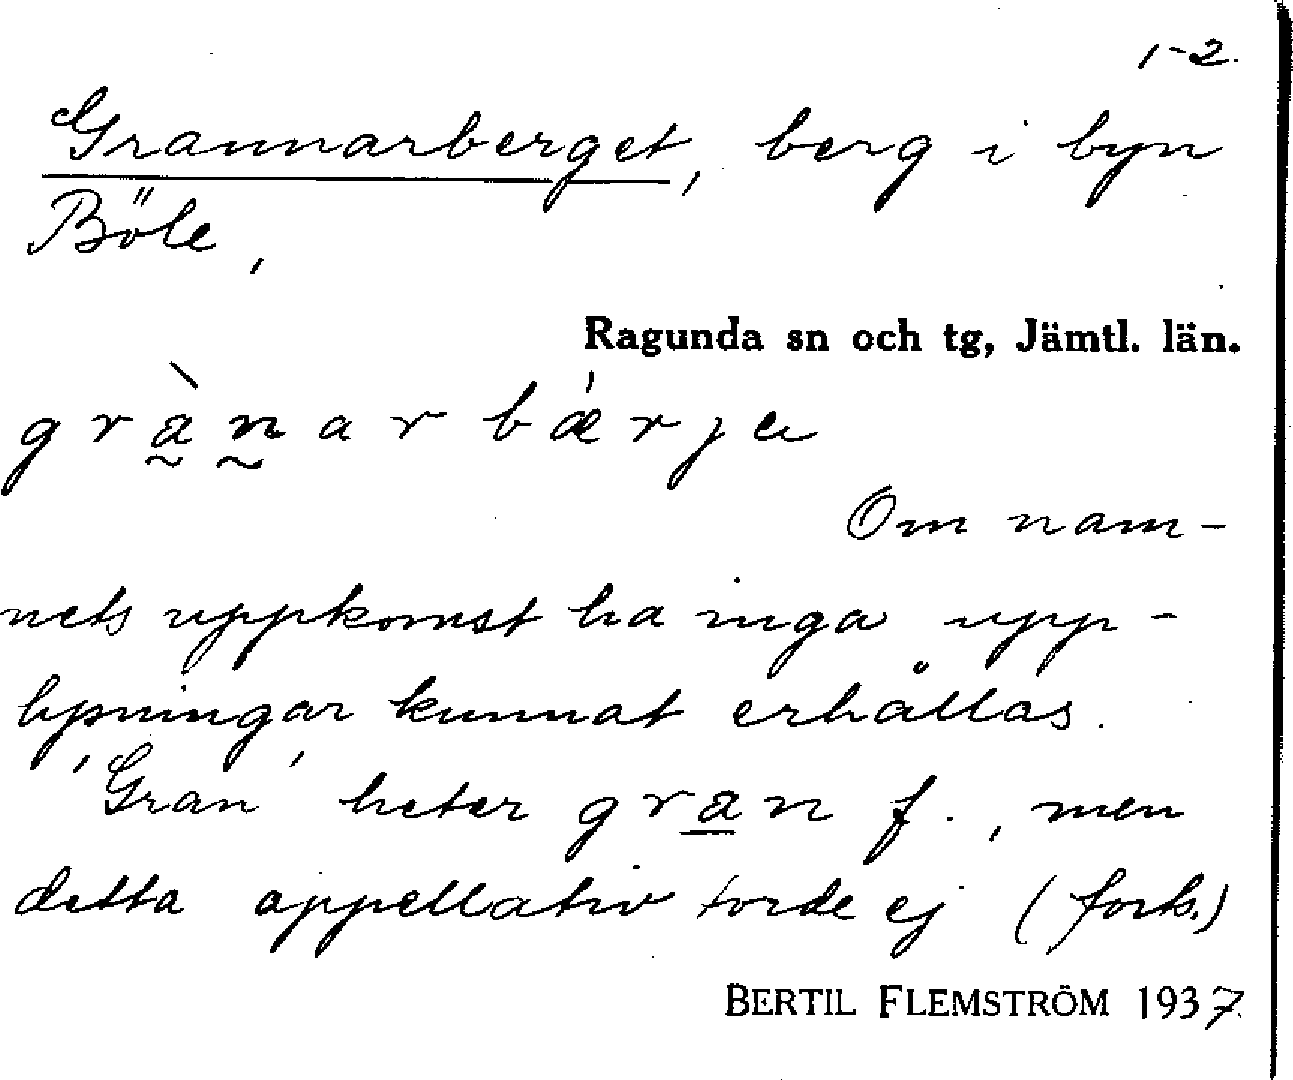 1-2.
Grannarberget, berg i byn
Böle,
Ragunda sn och tg, Jämtl. län.
grànar bǽrjа
Om nam-
nets uppkomst ha inga upp-
lysningar kunnat erhållas.
'Gran' heter gran f., men
detta appellativ torde ej (forts.)
BERTIL FLEMSTRÖM 1937.